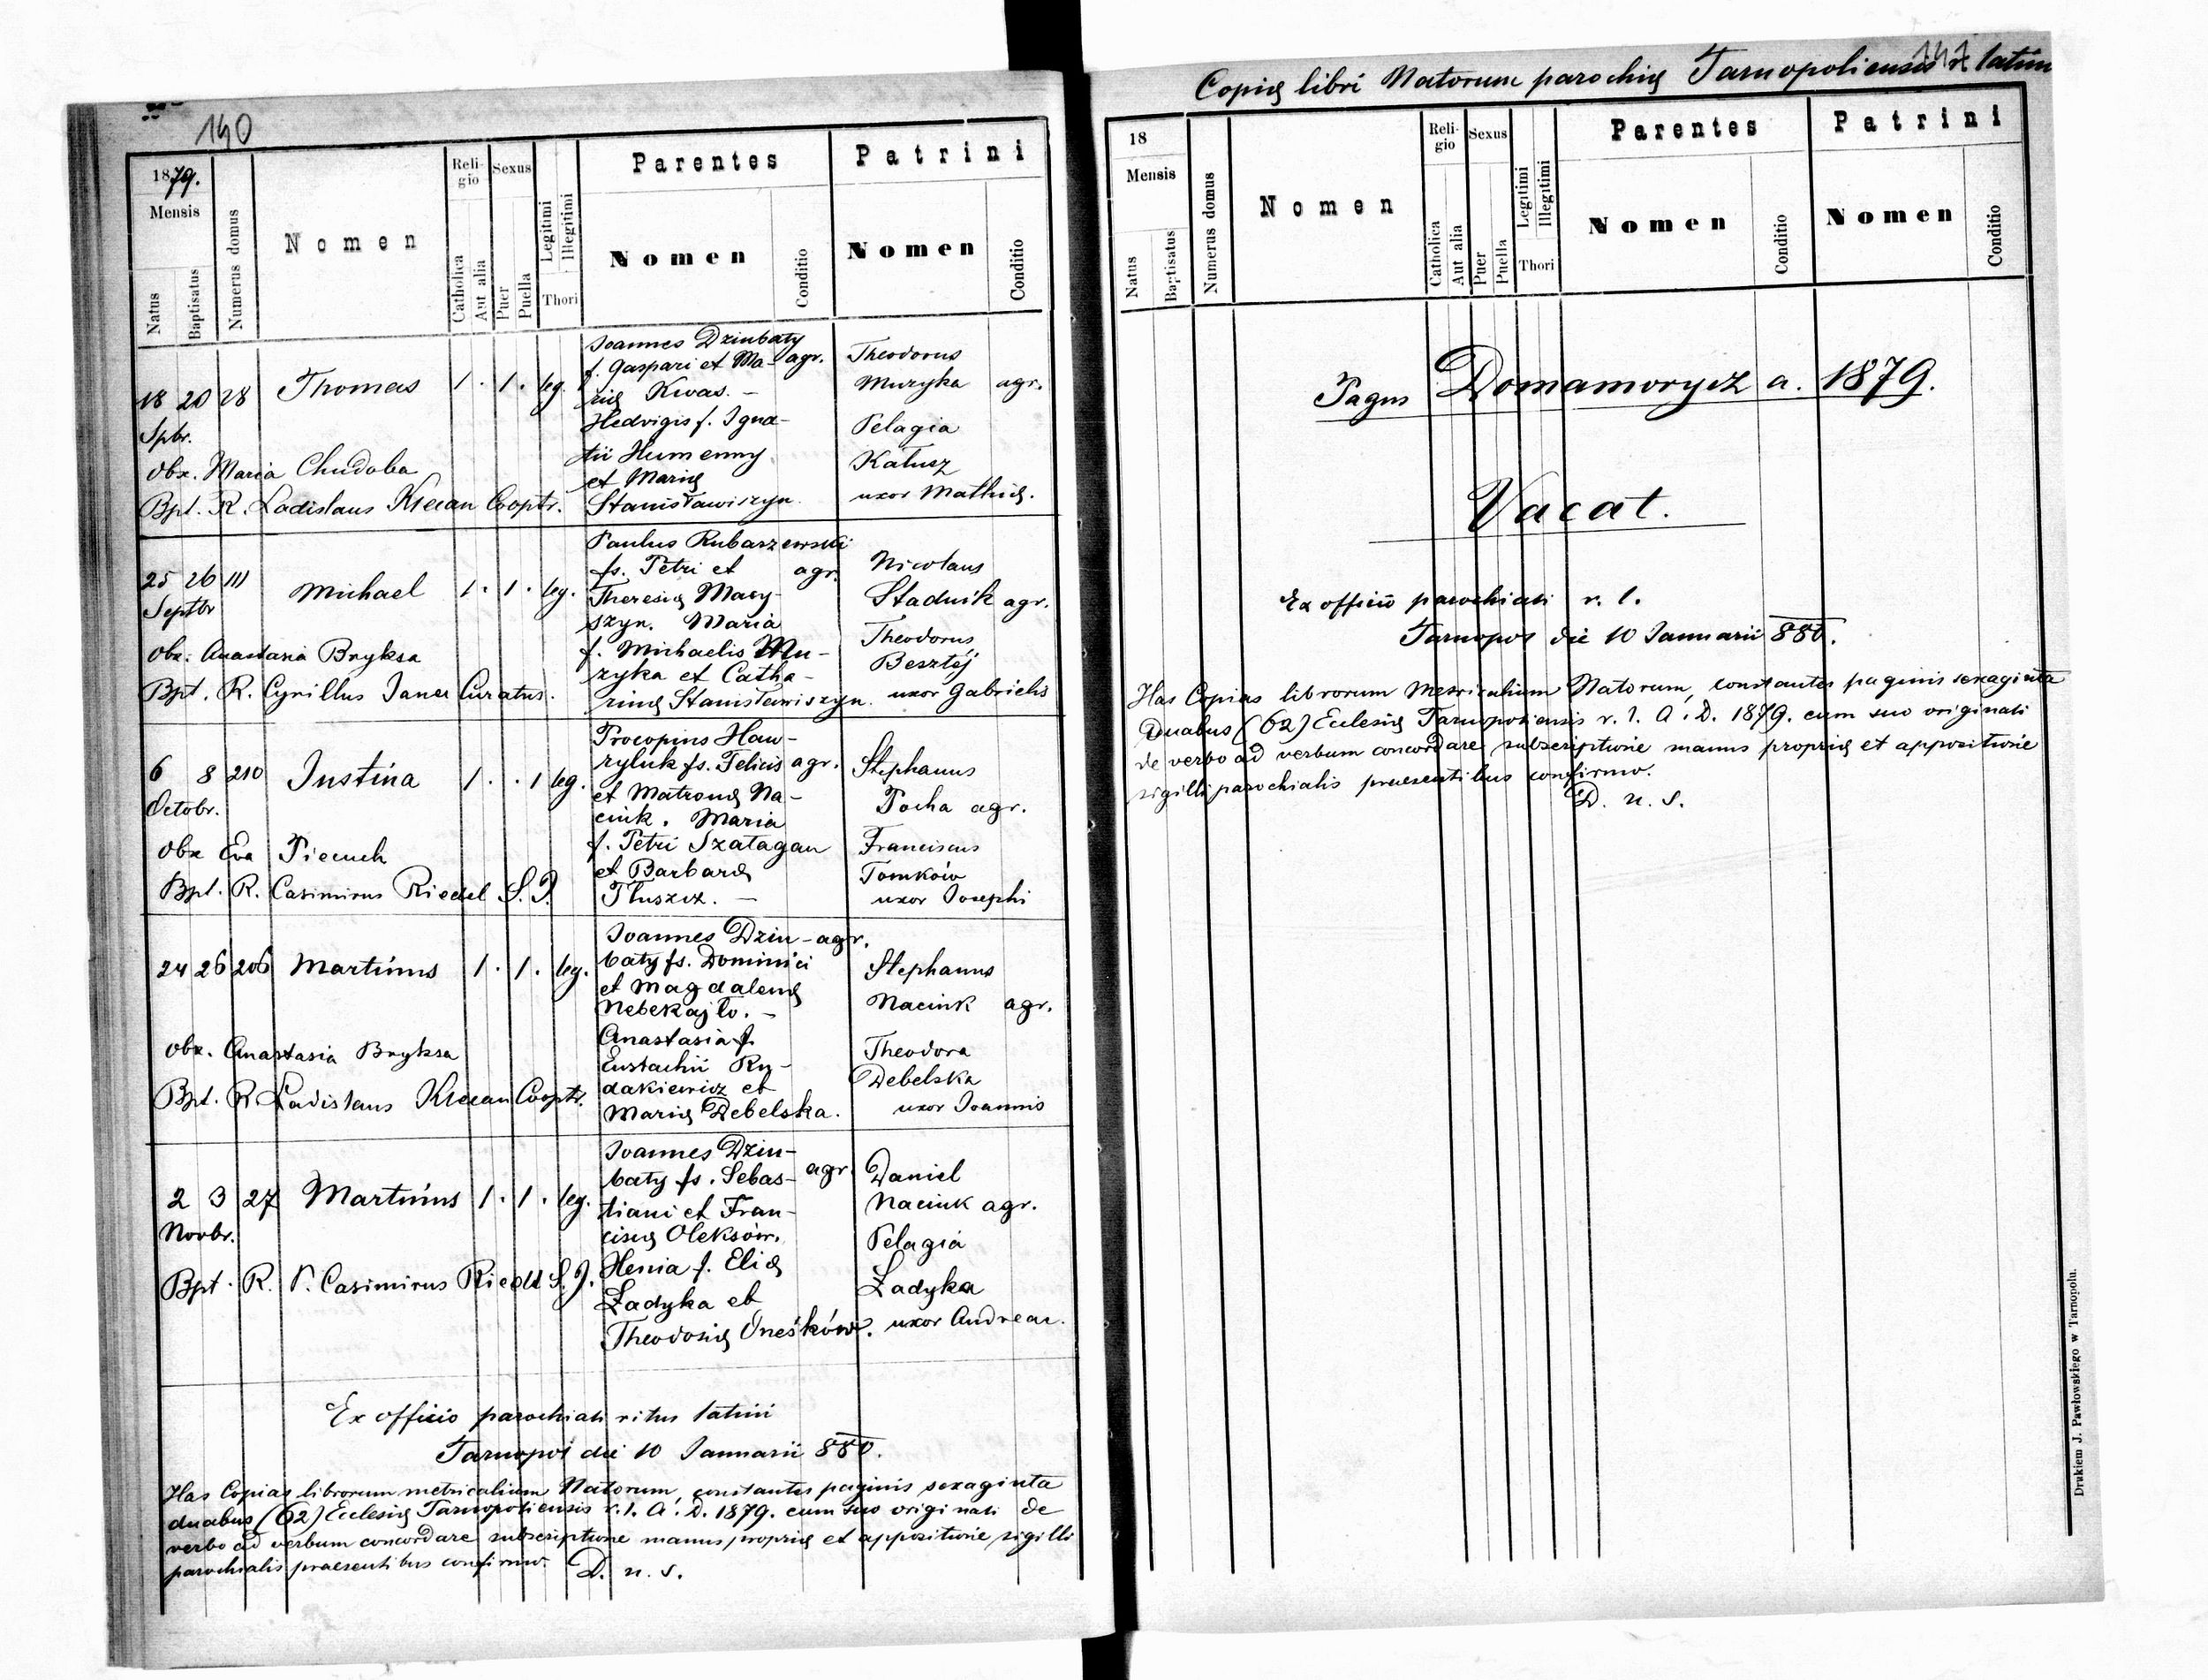 140
1879.
Mensis
Natus
Baptisatus
Numerus domus
Nomen
Religio
Catholica
Aut alia
Sexus
Puer
Puella
Legitimi
Illegitimi
Thori
Parentes
Nomen
Conditio
Patrini
Nomen
Conditio
18 20 28 Thomas 1 . 1 . leg.
Joannes Dziubaty
f. Gaspari et Ma- agr.
rię Kwas. -
Hedvigis f. Igna-
tii Humenny
et Marię
Stanisławiszyn.
Theodorus
Muzyka agr.
Pelagia
Kałusz
uxor Mathię.
Obx. Maria Chudoba
Bpt. R. Ladislaus Cooptr.
25 26 111 Michael 1 . 1 . leg.
Septbr
Paulus Rubaszewski
fs. Petri et agr.
Theresię Macy-
szyn. Maria
f. Michaelis Mu-
zyka et Catha-
rinę Stanisławiszyn.
Nicolaus
Stadnik agr.
Theodorus
Besztej
uxor Gabrielis
Obx: Anastasia Bryksa
Bpt. R. Cyrillus Janer Curatus.
6 8 210 Justina 1 . . 1 leg.
Octobr.
Procopius Haw-
ryluk fs. Felicis agr.
et Matronę Na-
ciuk. Maria
f. Petri Szatagan
et Barbarę
Tłuszcz. -
Stephanus
Pocha agr.
Franciscus
Tomków
uxor Josephi
Obx Eva Piecuch
Bpt. R. Casimirus Riedel S. J.
24 26 206 Martinus 1 . 1 . leg.
Joannes Dziu- agr.
baty fs. Dominici
et Magdalenę
Nebekajło. -
Anastasia f.
Eustachii Ru-
dakiewicz et
Marię Debelska.
Stephanus
Naciuk agr.
Theodora
Debelska
uxor Joannis
Obx. Anastasia Bryksa
Bpt. R Ladislaus Cooptr.
2 3 27 Martinus 1 . 1 . leg.
Novbr.
Joannes Dziu-
baty fs. Sebas- agr.
tiani et Fran-
ciscę Oleksów.
Henia f. Elię
Ładyka et
Theodosię Oneśków.
Daniel
Naciuk agr.
Pelagia
Ładyka
uxor Andreae.
Bpt. R. P. Casimirus Riedl S. J.
Ex officio parochiali ritus latini
Tarnopol die 10 Januarii 880.
Has Copias librorum metricalium Natorum, constantes paginis sexaginta
duabus (62) Eclesię Tarnopoliensis r. l. A. D. 1879. cum suo originali de
verbo ad verbum concordare subscriptione manus proprię et appositione sigilli
parochialis praesentibus confirmo. D. u. s.
Copię libri Natorum parochię Tarnopoliensis r. latini
18
Mensis
Natus
Baptisatus
Numerus domus
Nomen
Religio
Catholica
Aut alia
Sexus
Puer
Puella
Legitimi
Illegitimi
Thori
Parentes
Nomen
Conditio
Patrini
Nomen
Conditio
Pagus Domamorycz a. 1879.
Vacat.
Ex officio parochiali r. l.
Tarnopol die 10 Januarii 880.
Has Copias librorum Metricalium Natorum, constantes paginis sexaginta
duabus (62) Eclesię Tarnopoliensis r. l. A. D. 1879. cum suo originali
de verbo ad verbum concordare subscriptione manus proprię et appositione
sigilli parochialis praesentibus confirmo.
D. u. s.
Drukiem J. Pawłowskiego w Tarnopolu.